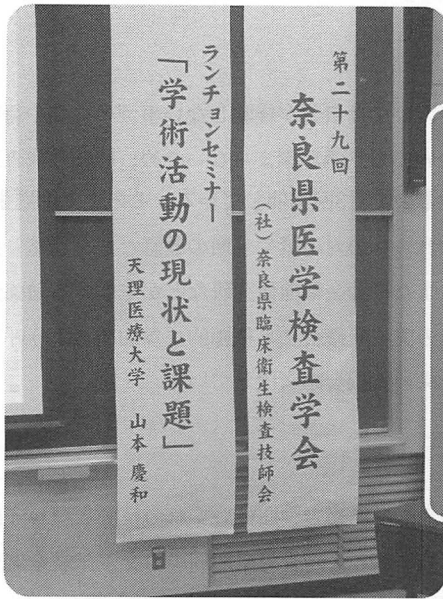 第二十九回
奈良県医学検査学会
（社）奈良県臨床衛生検査技師会
ランチョンセミナー
「学術活動の現状と課題」
天理医療大学　山本 慶和